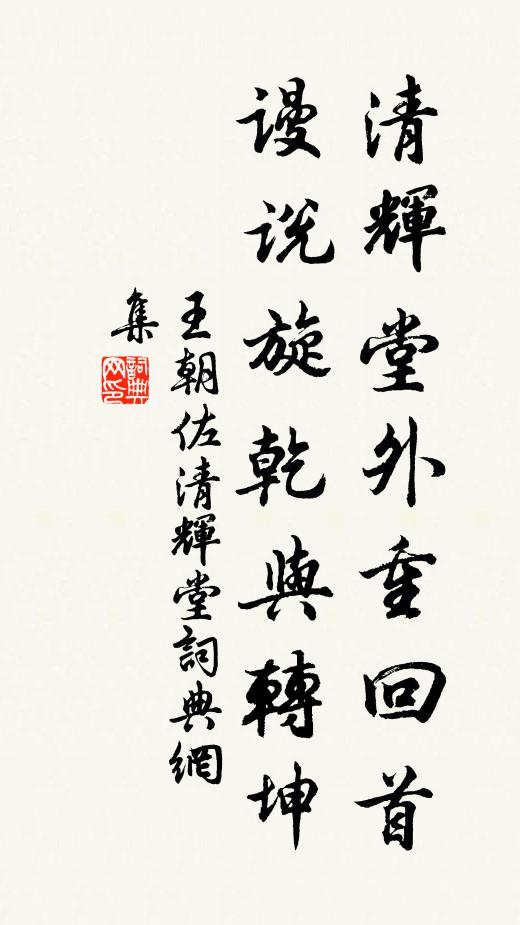 清輝堂外重回首
謾说旋乾與轉坤
王朝佐清輝堂詞典網
集
詞典網印